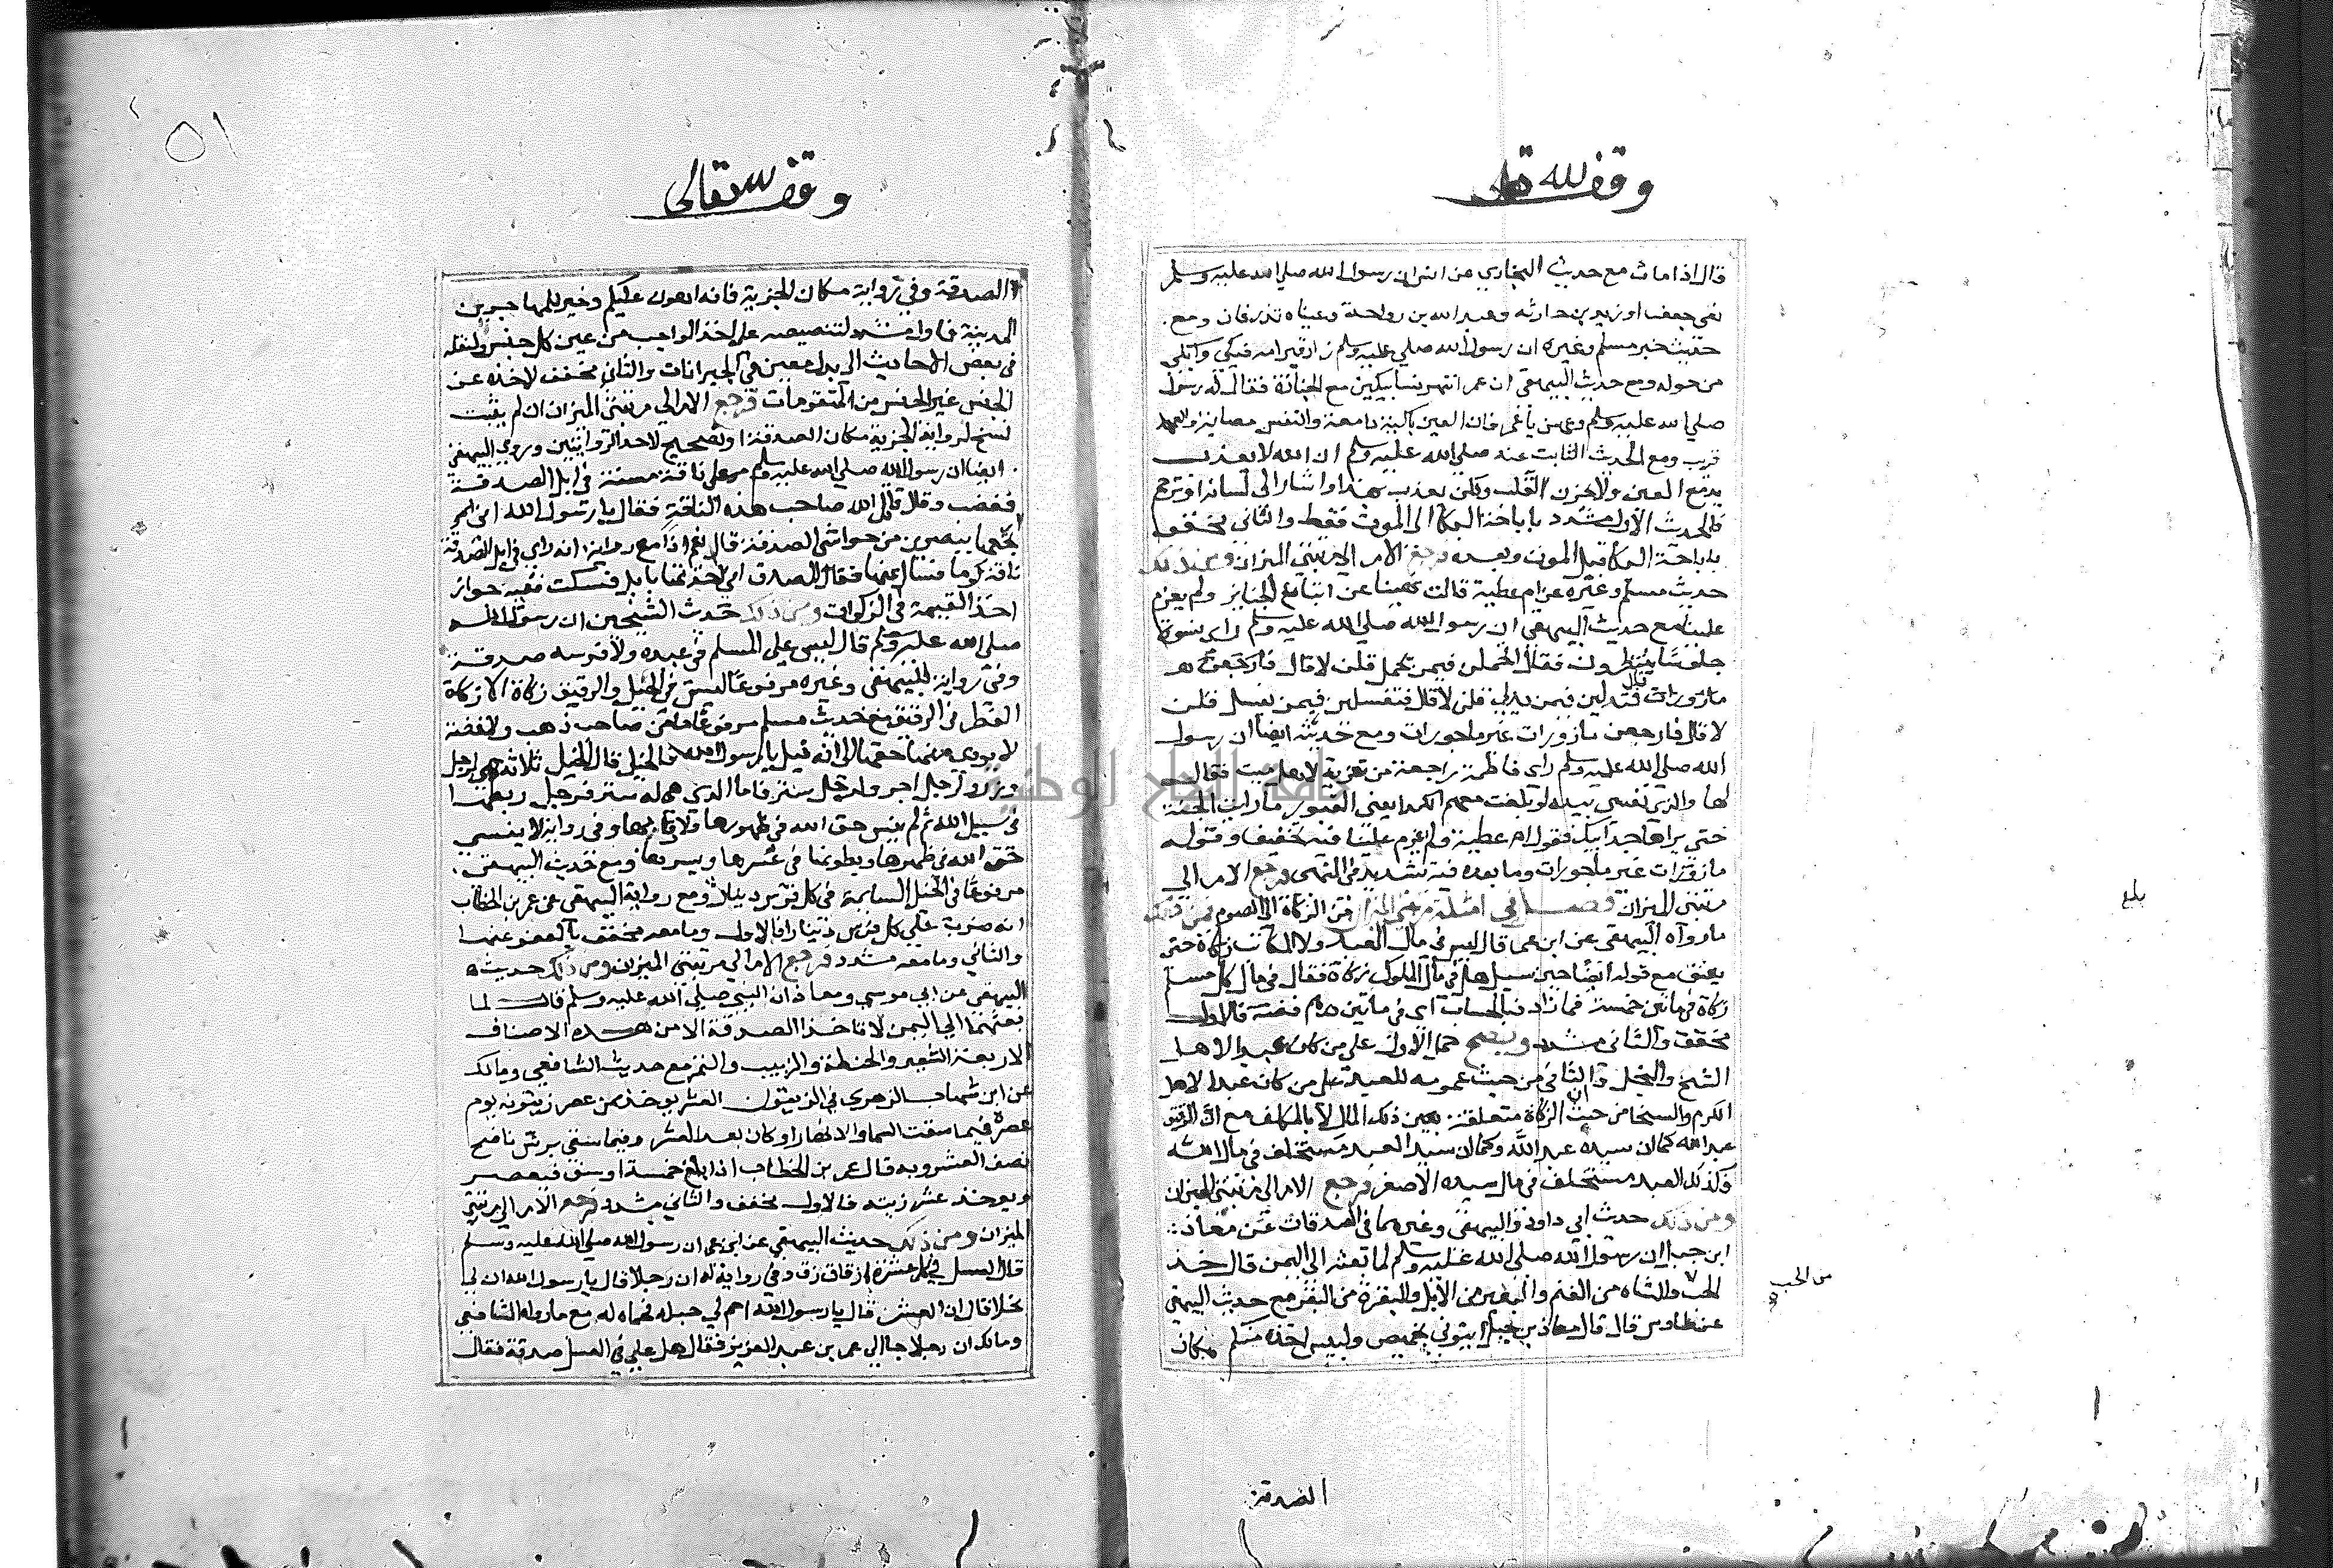 وقف لله تعالى
قال اذا مات مع حديث البخاري عن انس ان رسول الله صلي الله عليه وسلم
نعي جعفرا وزيد بن حارثه وعبد الله بن رواحة وعيناه تذرفان ومع
حديث خبر مسلم وغيره ان رسول الله صلي عليه وسلم زار قبر امه فبكي وابكي
من حوله ومع حديث البيهقي ان عمر انتهر نسا يبكين مع الجنازة فقال له رسول
صلي الله عليه وسلم دعهن يا عمر فان العين باكية دامعة والنفس مصابة والعهد
قريب ومع الحديث الثابت عنه صلي الله عليه وسلم ان الله لا يعذب
بدمع العين ولا بحزن القلب ولكن يعذب بهذا واشار الى لسانه او يرحم
فالحديث الاول مشدد باباحة البكا الى الموت فقط والثاني مخفف
باباحة البكا قبل الموت وبعده فرجع الامر الي مرتبتي الميزان ومن ذلك
حديث مسلم وغيره عن ام عطية قالت نهينا عن اتباع الجنايز ولم يعزم
علينا مع حديث البيهقي ان رسول الله صلي الله عليه وسلم راى نسوة
جلوسا ينتظرون فقال اتحملن فيمن يحمل قلن لا قال فارجعن
مازورات قال فتدلين فيمن يدلي قلن لا قال فتغسلين فيمن يغسل قلن
لا قال فارجعن مازورات غير ماجورات ومع حديثه ايضا ان رسول
الله صلي الله عليه وسلم راي فاطمة راجعة من تعزية لاهل ميت فقال
لها والذي نفسي بيده لو بلغت معهم الكدا يعني القبور ما رايت الجنة
حتي يراها جد ابيك فقول ام عطية ولم يعزم علينا فيه تخفيف وقوله
مازورات غير ماجورات وما بعده فيه تشديد في النهي فرجع الامر الي
مرتبتي الميزان فصل في امثلة مرتبتي الميزان من الزكاة الى الصوم فمن ذلك
ما رواه البيهقي عن ابن عمر قال ليس في مال العبد ولا المكاتب زكاة حتي
يعتق مع قوله ايضا حين سيل هل في مال المملوك زكاة فقال في مال كل مسلم
زكاة في ماتين خمسة فما زاد فبالحساب اي في ماتين درهم فضة فالاول
مخفف والثاني مشدد ويصح حمل الاول علي من كان عبد الاهل
الشح والبخل والثاني من حيث عمومه للعبد علي من كان عبدا لاهل
الكرم والسخا من حيث ان الزكاة متعلقة بعين ذلك المال لا بالمكلف مع ان الرقيق
عبد الله كما ان سيده عبد الله وكما ان سيد العبد مستخلف في مال الله
فكذلك العبد مستخلف في مال سيده الاصغر فرجع الامر الي مرتبتي الميزان
ومن ذلك حديث ابي داود والبيهقي وغيرهما في الصدقات عن معاذ
ابن جبل ان رسول الله صلي الله عليه وسلم لما بعثه الى اليمن قال خذ
الحب والشاه من الغنم والبعير من الابل والبقرة من البقر مع حديث البيهقي
عن طاوس قال قال معاذ بن جبل ايتوني بخميص ولبيس اخذه منكم مكان
بلغ
من الحب
الصدقة
٥١
وقف لله تعالى
الصدقة وفي رواية مكان الجزية فانه اهون عليكم وخير للمهاجرين
المدينة فالاول مشدد لتنصيصه علي اخذ الواجب من عين كل جنس ولنقله
في بعض الاحاديث الى بدل معين في الجبرانات والثاني مخفف لاخذه عن
الجنس غير الجنس من المتقومات فرجع الامر الي مرتبتي الميزان ان لم يثبت
نسخ لرواية الجزية مكان الصدقة او تصحيح لاحد الروايتين وروي البيهقي
ايضا ان رسول الله صلي الله عليه وسلم مر علي ناقة مسنة في ابل الصدقة
فغضب وقال قاتل الله صاحب هذه الناقة فقال يا رسول الله اني
ارتجعتها ببعيرين من حواشي الصدقة قال نعم اذا مع رواية انه راي في ابل الصدقة
ناقة كوما فسال عنها فقال المصدق اني اخذتها بابل فسكت ففيه جواز
اخذ القيمة في الزكوات ومن ذلك حديث الشيخين ان رسول الله
صلي الله عليه وسلم قال ليس علي المسلم في عبده ولا فرسه صدقة
وفي رواية للبيهقي وغيره مرفوعا ليس في الخيل والرقيق زكاة الا زكاة
الفطر في الرقيق مع حديث مسلم مرفوعا ما من صاحب ذهب ولا فضة
لا يودي منها حقها الى ان قيل يا رسول الله فالخيل قال الخيل ثلاثة هي لرجل
وزر ولرجل اجر ولرجل ستر فاما الذي هي له ستر فرجل ربطها
في سبيل الله ثم لم ينس حق الله في ظهورها ولا رقابها وفي رواية لا ينسي
حق الله في ظهرها وبطونها في عسرها ويسرها ومع حديث البيهقي
مرفوعا في الخيل السايمة في كل فرس دينار ومع رواية البيهقي عن عمر بن الخطاب
انه ضرب علي كل فرس دينارا فالاول وما معه مخفف بالعفو عنها
والثاني وما معه مشدد فرجع الامر الي مرتبتي الميزان ومن ذلك حديث
البيهقي عن ابي موسي ومعاذ ان النبي صلي الله عليه وسلم قال لما
بعثهما الي اليمن لا تاخذا الصدقة الا من هذه الاصناف
الاربعة الشعير والحنطة والزبيب والتمر مع حديث الشافعي ومالك
عن ابن شهاب الزهري في الزيتون العشر يوخذ من عصر زيتونه يوم
عصره فيما سقت السما والانهار او كان بعد العشر وفيما سقي برش ناضح
نصف العشر وبه قال عمر بن الخطاب اذا بلغ خمسة اوسق فيعصر
ويوخذ عشر زيته فالاول مخفف والثاني مشدد فرجع الامر الي مرتبتي
الميزان ومن ذلك حديث البيهقي عن ابن عمر ان رسول الله صلي الله عليه وسلم
قال العسل في كل عشرة ازقاق زق وفي رواية له ان رجلا قال يا رسول الله ان لي
نحلا قال ان العشر قال يا رسول الله احم لي جبله فحماه له مع ما رواه الشافعي
ومالك ان رجلا جا الي عمر بن عبد العزيز فقال هل علي في العسل صدقة فقال